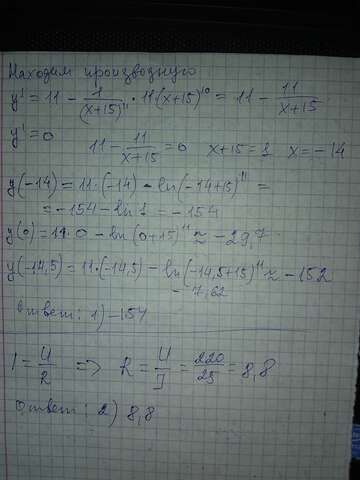 Находим производную
y' = 11 - 1/(x+15)^11 · 11(x+15)^10 = 11 - 11/(x+15)
y' = 0
11 - 11/(x+15) = 0 x+15 = 1 x = -14
y(-14) = 11·(-14) - ln(-14+15)^11 =
= -154 - ln 1 = -154
y(0) = 11·0 - ln(0+15)^11 ≈ -29,7
y(-14,5) = 11·(-14,5) - ln(-14,5+15)^11 ≈ -152
-7,62
Ответ: 1) -154
I = U/R => R = U/I = 220/25 = 8,8
Ответ: 2) 8,8